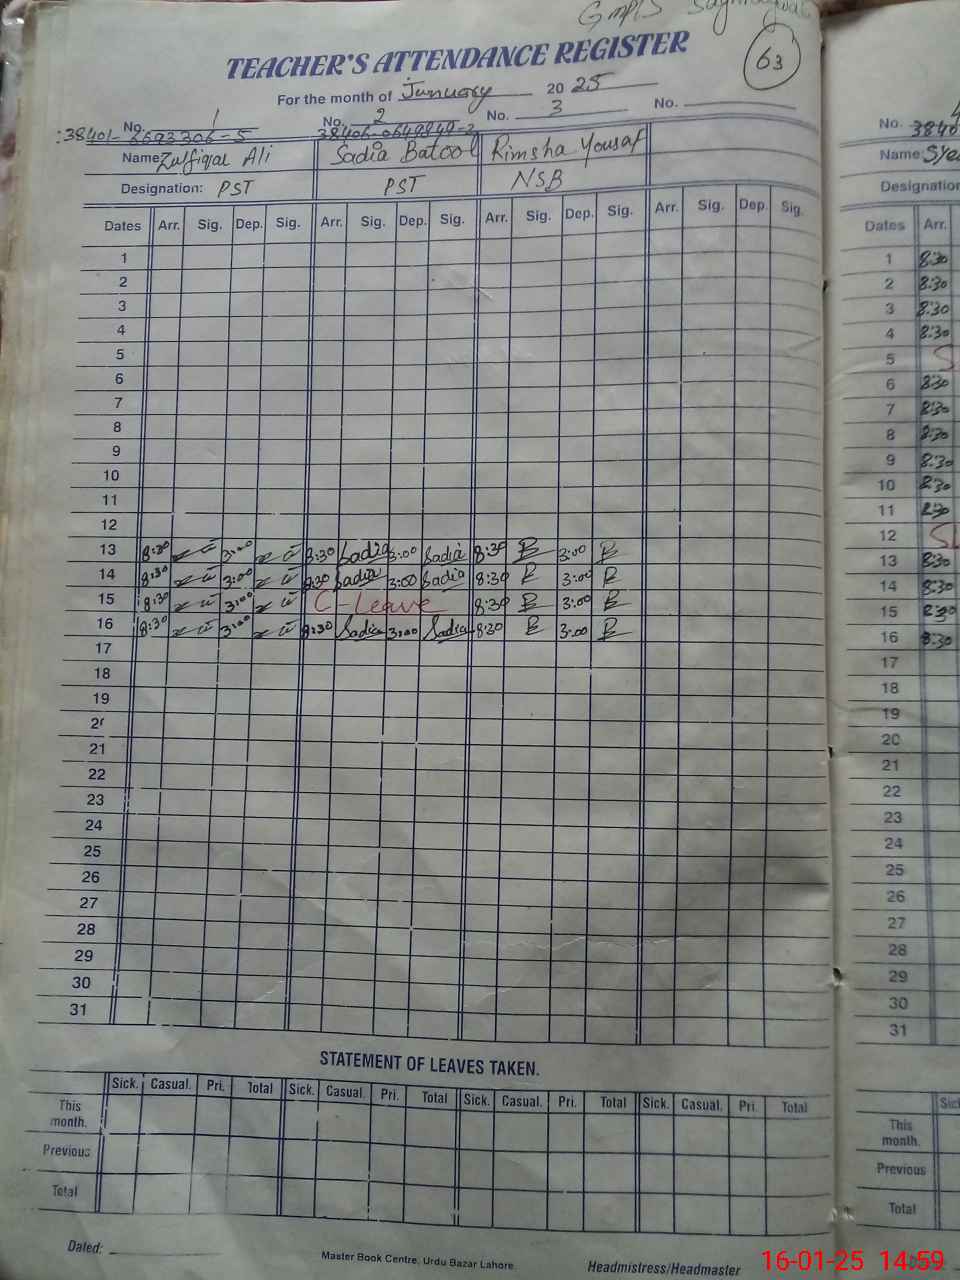 GMPS
TEACHER'S ATTENDANCE REGISTER
63
For the month of January 2025
No. 1 No. 2 No. 3 No.
38401-6693306-5 38406-0649849-2
Name: Zulfiqar Ali Sadia Batool Rimsha Yousaf
Designation: PST PST NSB
Dates Arr. Sig. Dep. Sig. Arr. Sig. Dep. Sig. Arr. Sig. Dep. Sig. Arr. Sig. Dep. Sig.
1
2
3
4
5
6
7
8
9
10
11
12
13 8:30 3:00 8:30 Sadia 3:00 Sadia 8:30 3:00
14 8:30 3:00 8:30 Sadia 3:00 Sadia 8:30 3:00
15 8:30 3:00 C-Leave 8:30 3:00
16 8:30 3:00 8:30 Sadia 3:00 Sadia 8:30 3:00
17
18
19
21
22
23
24
25
26
27
28
29
30
31
STATEMENT OF LEAVES TAKEN.
Sick. Casual. Pri. Total Sick. Casual. Pri. Total Sick. Casual. Pri. Total Sick. Casual. Pri. Total
This
month.
Previous
Total
Dated:
Master Book Centre, Urdu Bazar Lahore.
Headmistress/Headmaster
No. 3840
Name: Sye
Designation
Dates Arr.
1 8:30
2 8:30
3 8:30
4 8:30
5 S
6 8:30
7 8:30
8 8:30
9 8:30
10 8:30
11 8:30
12 SU
13 8:30
14 8:30
15 8:30
16 8:30
17
18
19
20
21
22
23
24
25
26
27
28
29
30
31
Sick
This
month.
Previous
Total
16-01-25 14:59